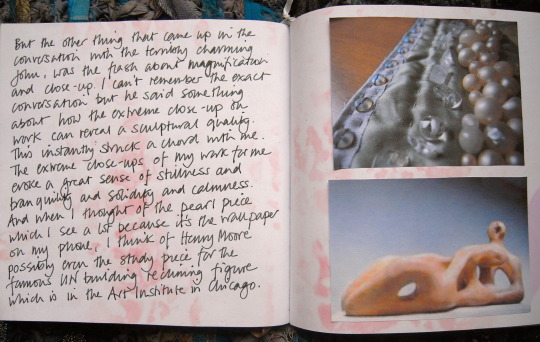 But the other thing that came up in the
conversation with the terribly charming
John, was the flash about magnification
and close-up. I can't remember the exact
conversation but he said something
about how the extreme close-up on
work can reveal a sculptural quality.
This instantly struck a chord with me.
The extreme close-ups of my work for me
evoke a great sense of stillness and
tranquility and solidity and calmness.
And when I thought of the pearl piece
which I see a lot because it's the wallpaper
on my phone, I think of Henry Moore
possibly even the study piece for the
famous UN building reclining figure
which is in the Art Institute in Chicago.